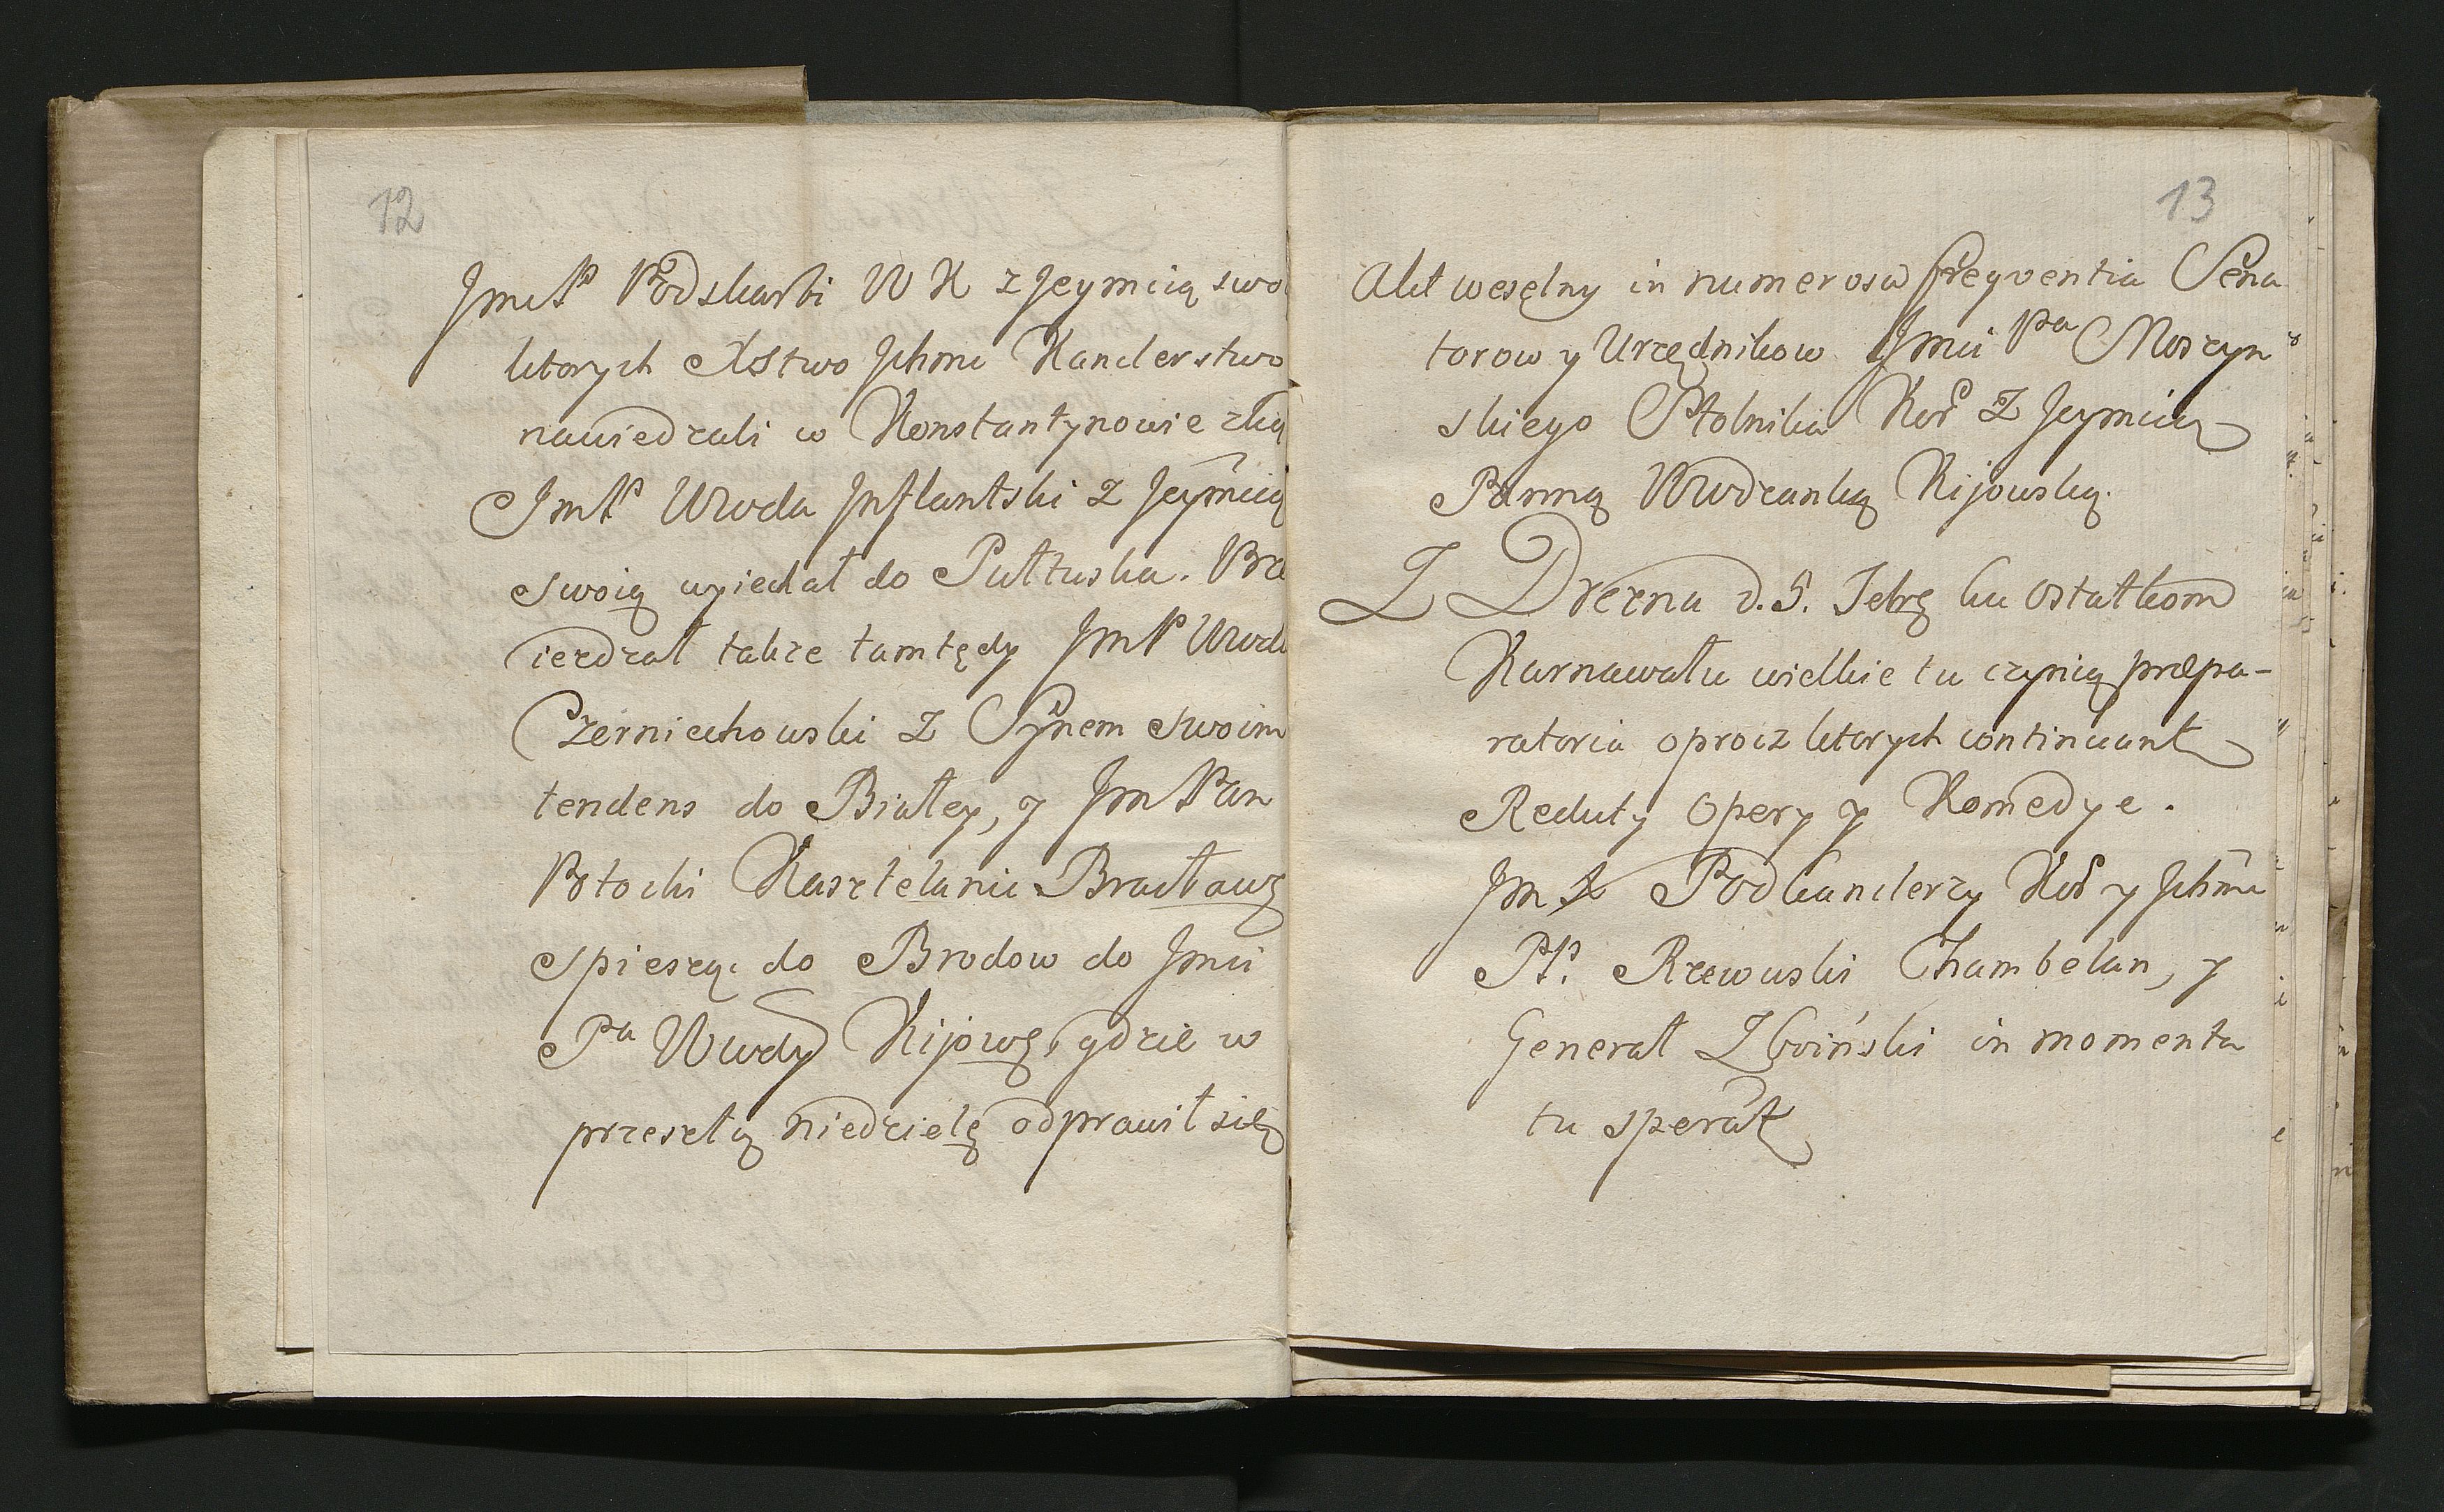 12
JmćP Podskarbi W K z Jeymcią swo
ktorych Xstwo Jchmć Kanclerstwo
nawiedzali w Konstantynowie zkąd
JmP Wwoda Jnflantski z Jeymcią
swoią wyiechał do Pułtuska. Prze
iezdzał także tamtędy JmP Wwod
Czerniechowski z Synem swoim
tendens do Białey, y Jm Pan
Potocki Kasztelanic Bracławz
spiesząc do Brodow do Jmci
Pa Wwdy Kijowg, gdzie w
przeszłą niedzielę odprawił się
13
Akt weselny in numerosa freqventia Sena
torow y Urzędnikow Jmci Pa Moszyn
skiego Stolnika Kor Z Jeymcią
Panną Wwdzanką Kijowską.
Z Drezna d. 5. Febrę ku ostatkom
Karnawału wielkie tu czynią præpa-
ratoria oprocz ktorych continuant
Reduty Opery y Komedye.
Jm X Podkanclerzy Kor y Jchmć
PP. Rzewuski Chambelan, y
Generał Zboiński in momenta
tu sperat